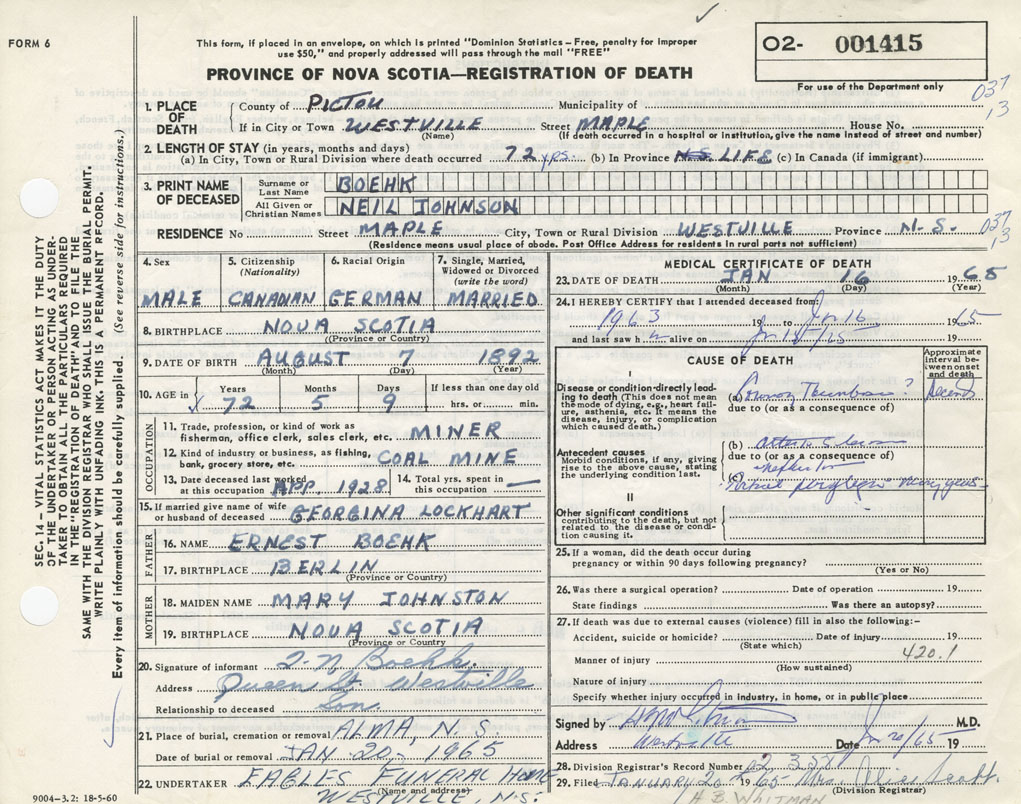 FORM 6
This form, if placed in an envelope, on which is printed "Dominion Statistics - Free, penalty for improper
use $50," and properly addressed will pass through the mail "FREE"
PROVINCE OF NOVA SCOTIA—REGISTRATION OF DEATH
02- 001415
For use of the Department only
037
13
1. PLACE OF DEATH
County of PICTOU Municipality of
If in City or Town WESTVILLE Street MAPLE House No.
(Name) (If death occurred in a hospital or institution, give the name instead of street and number)
2. LENGTH OF STAY (in years, months and days)
(a) In City, Town or Rural Division where death occurred 72 yrs. (b) In Province N.S. LIFE (c) In Canada (if immigrant)
3. PRINT NAME OF DECEASED
Surname or Last Name BOEHK
All Given or Christian Names NEIL JOHNSON
RESIDENCE No. Street MAPLE City, Town or Rural Division WESTVILLE Province N.S.
(Residence means usual place of abode. Post Office Address for residents in rural parts not sufficient)
037
13
SEC. 14—VITAL STATISTICS ACT MAKES IT THE DUTY
OF THE UNDERTAKER OR PERSON ACTING AS UNDER-
TAKER TO OBTAIN ALL THE PARTICULARS REQUIRED
IN THE "REGISTRATION OF DEATH" AND TO FILE THE
SAME WITH THE DIVISION REGISTRAR WHO SHALL ISSUE THE BURIAL PERMIT.
WRITE PLAINLY WITH UNFADING INK. THIS IS A PERMANENT RECORD.
Every item of information should be carefully supplied. (See reverse side for instructions.)
4. Sex
MALE
5. Citizenship
(Nationality)
CANADIAN
6. Racial Origin
GERMAN
7. Single, Married,
Widowed or Divorced
(write the word)
MARRIED
8. BIRTHPLACE NOVA SCOTIA
(Province or Country)
9. DATE OF BIRTH AUGUST 7 1892
(Month) (Day) (Year)
10. AGE in Years Months Days If less than one day old
72 5 9 hrs. or min.
OCCUPATION
11. Trade, profession, or kind of work as
fisherman, office clerk, sales clerk, etc. MINER
12. Kind of industry or business, as fishing,
bank, grocery store, etc. COAL MINE
13. Date deceased last worked
at this occupation APP. 1928
14. Total yrs. spent in
this occupation —
15. If married give name of wife
or husband of deceased GEORGINA LOCKHART
FATHER
16. NAME ERNEST BOEHK
17. BIRTHPLACE BERLIN
(Province or Country)
MOTHER
18. MAIDEN NAME MARY JOHNSTON
19. BIRTHPLACE NOVA SCOTIA
(Province or Country
20. Signature of informant Boehk
Address Queen St. Westville
Relationship to deceased Son.
21. Place of burial, cremation or removal ALMA, N.S.
Date of burial or removal JAN 20, 1965
22. UNDERTAKER EAGLES FUNERAL HOME
(Name and address)
WESTVILLE, N.S.
9004-3.2: 18-5-60
MEDICAL CERTIFICATE OF DEATH
23. DATE OF DEATH JAN 16 1965
(Month) (Day) (Year)
24. I HEREBY CERTIFY that I attended deceased from:
1963 19 to Jan 16 1965
and last saw h alive on 19
CAUSE OF DEATH
Approximate
interval be-
tween onset
and death
I
Disease or condition directly lead-
ing to death (This does not mean
the mode of dying, e.g., heart fail-
ure, asthenia, etc. It means the
disease, injury, or complication
which caused death.)
(a) ?
due to (or as a consequence of)
Antecedent causes
Morbid conditions, if any, giving
rise to the above cause, stating
the underlying condition last.
(b)
due to (or as a consequence of)
(c) many years
II
Other significant conditions
contributing to the death, but not
related to the disease or condi-
tion causing it.
25. If a woman, did the death occur during
pregnancy or within 90 days following pregnancy?
(Yes or No)
26. Was there a surgical operation? Date of operation 19
State findings Was there an autopsy?
27. If death was due to external causes (violence) fill in also the following:-
Accident, suicide or homicide? Date of injury 19
(State which)
420.1
Manner of injury
(How sustained)
Nature of injury
Specify whether injury occurred in industry, in home, or in public place
Signed by M.D.
Address Westville Date Jan 20/65 19
28. Division Registrar's Record Number
29. Filed JANUARY 20 1965 Mrs.
(Division Registrar)
H.B. WHITMAN